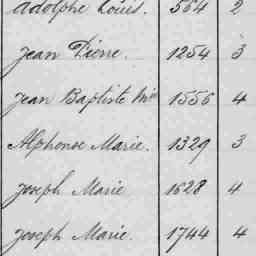 Adolphe Louis. 564 2
Jean Pierre. 1254 3
Jean Baptiste Mie 1556 4
Alphonse Marie. 1329 3
Joseph Marie 1628 4
Joseph Marie. 1744 4